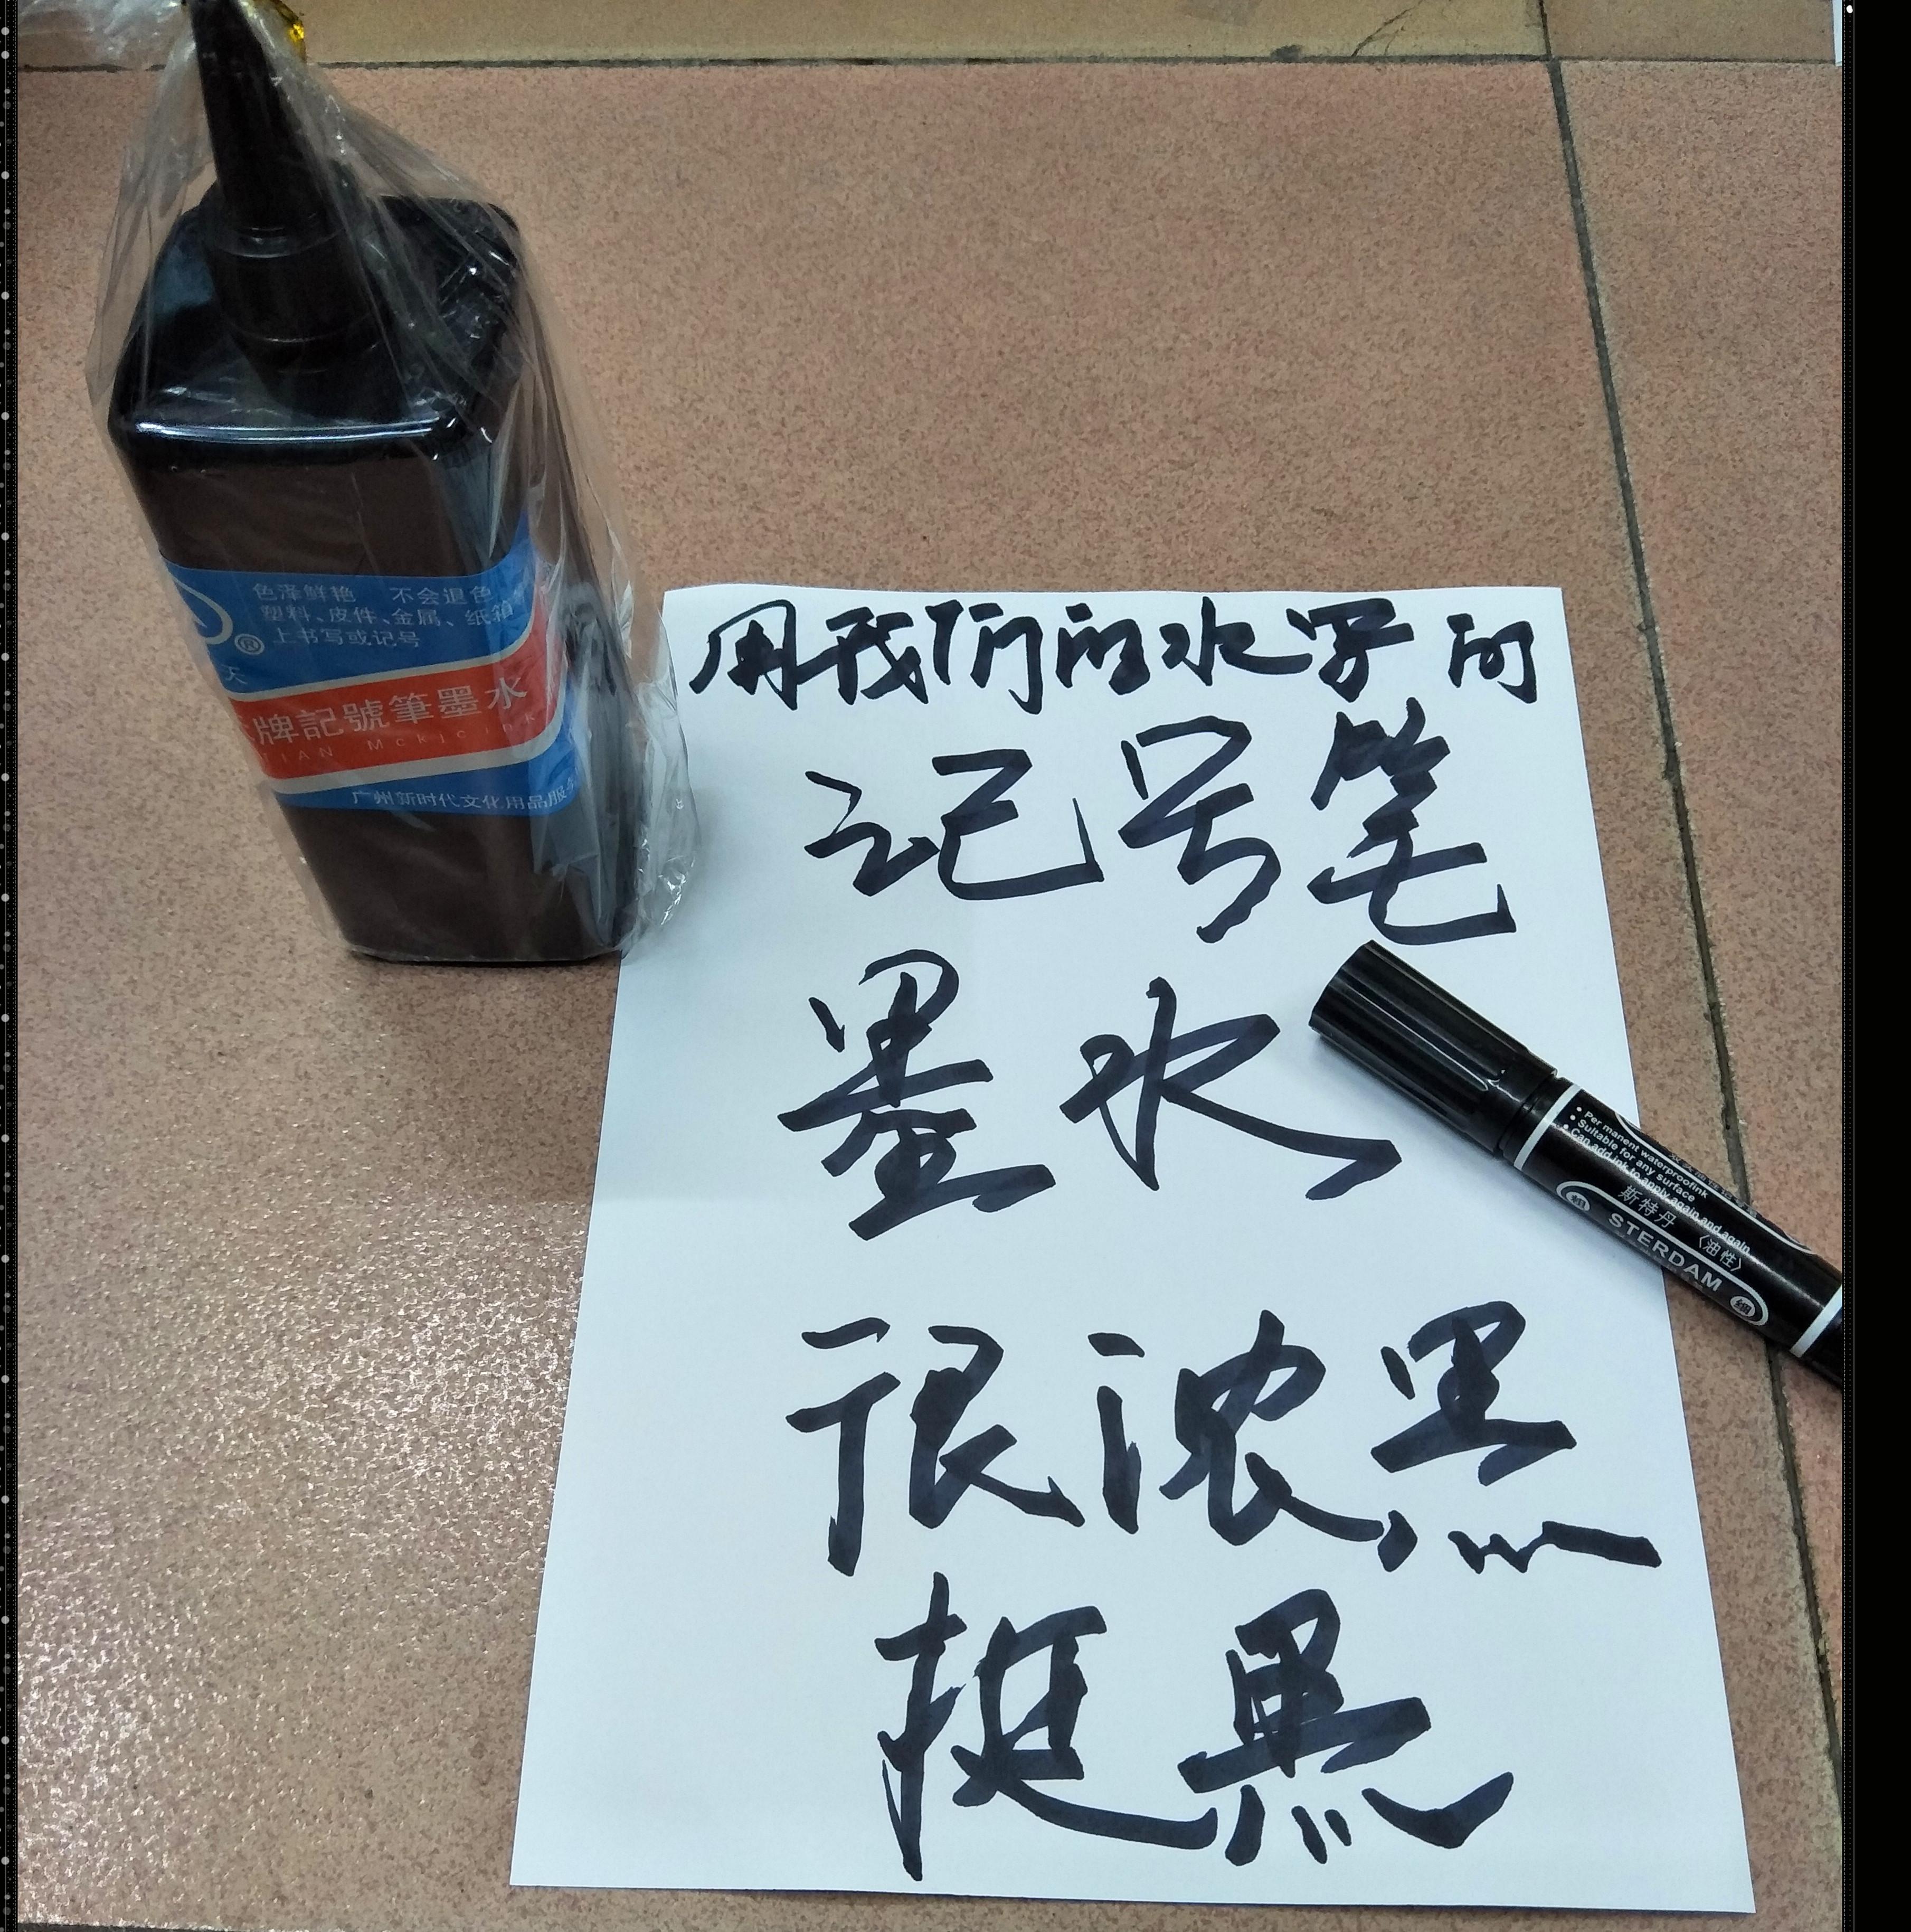 色泽鲜艳 不会退色
塑料、皮件、金属、纸箱
上书写或记号
®
天
牌記號筆墨水
TIAN
广州新时代文化用品服
用我们的水写的
记号笔
墨水
很浓黑
挺黑
Per manent waterproofink
Suitable for any surface
Can add ink to apply again and again
斯特丹 〈油性〉
粗 STERDAM 細